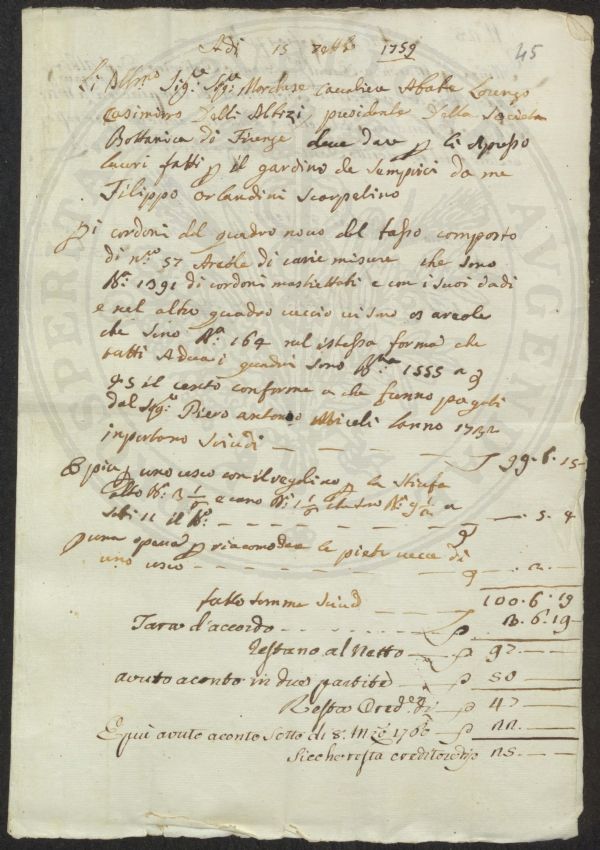 Adi 15 Sett.e 1759
45
Ll Ill.mo Sig.re Sig.re Marchese Cavaliere Abate Lorenzo
Casimiro Delli Albizi, presidente Della Societa
Bottanica di Firenze deve dare p li Apresso
lauri fatti p il gardino de Sempici da me
Filippo Orlandini Scarpelino
Pi cordoni del quadro novo del tasso composto
di n.o 57 Areole di varie misure che sono
B.a 1391 di cordoni maskettati e con i suoi dadi
e nel altro quadro vecio vi sono areole
che sono B.a 164 nel istessa forma che
tutti Adua i quadri sono B.a 1555 a
45 il cento conforme a che furno pagati
dal Sig.re Piero antonio Micheli lanno 1732
inportono Scudi — 99.6.15
E piu p uno usco con il regolino p la Stufa
alto B.a 3 1/2 e
Soldi 11 il B.o — 5.4
p una opera p riacomodare le pietre vecce di
uno usco — 2
fatto somme Scudi — 100.6.19
Tara d'accordo — 6.19
Restano al Netto — 97
avuto aconto in due partite — 50
Resta Cred.e di — 47
E piu avuto aconto Sotto di 8. 1760 — 22
Sicche resta creditore di — 25
SPERI AVGENDAE